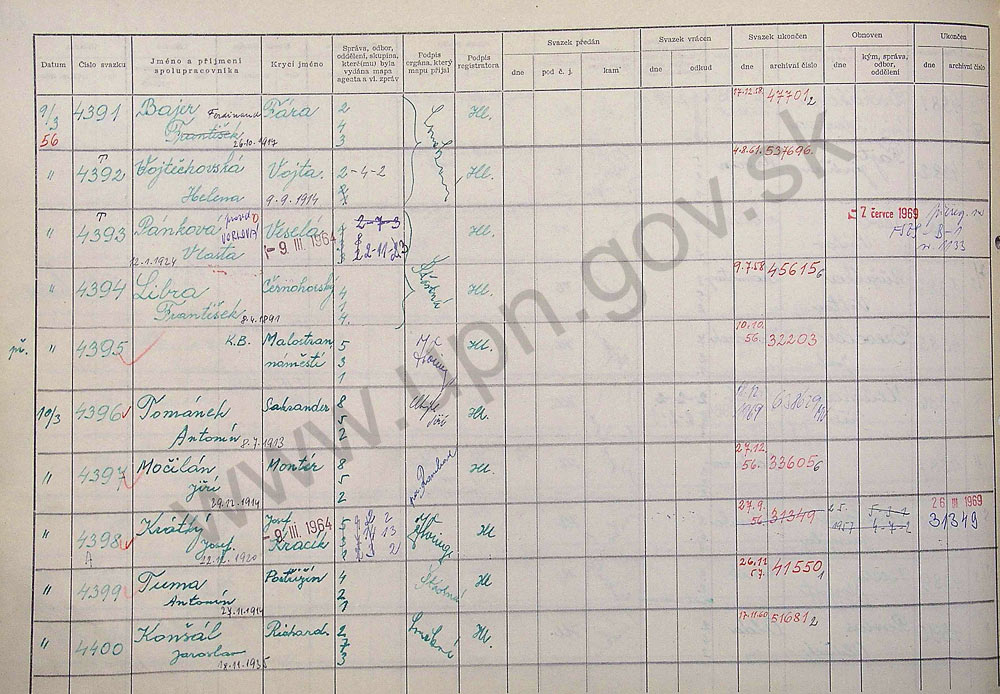 Datum
Číslo svazku
Jméno a příjmení
spolupracovníka
Krycí jméno
Správa, odbor,
oddělení, skupina,
které(mu) byla
vydána mapa
agenta a vl. zpráv
Podpis
orgána, který
mapu přijal
Podpis
registrátora
Svazek předán
dne
pod č. j.
kam
Svazek vrácen
dne
odkud
Svazek ukončen
dne
archivní číslo
Obnoven
dne
kým, správa,
odbor,
oddělení
Ukončen
dne
archivní číslo
9/3 56 4391 Bajer Ferdinand Fára 2 Hl. 17.12.58. 47701/2
František 26.10.1917 4
3
" 4392 Vojtěchovská Vojta. 2-4-2 Hl. 4.8.61. 537696
Helena 9.9.1914
" 4393 Pánková Veselá 2-7-3 Hl. - 7. července 1969
VORLOVÁ - 9. III. 1964 2-11
Vlasta
12.1.1924
" 4394 Libra Černohorský 4 Hl. 9.7.58 45615/6
František 8.4.1891 1
4.
př. " 4395 K.B. Malostran. 5 Hl. 10.10. 56. 32203
náměstí 3
1
10/3 4396 Tománek 8 Hl. 1969
Antonín 8.7.1913 5 Jiří
2
" 4397 Močilán Montér 8 Hl. 27.12. 56. 33605/6
Jiří 29.12.1914 5
2
" 4398 Krátký Josef 5 Hl 27.9. 56. 31349 1957 5-3-1 26 III 1969
Josef. - 9 III. 1964 4-7-1 31349
A 22.12.1920 Kracík
" 4399 Tuma Postřižín 4 Škvorná Hl 26.11 57. 41550/1
Antonín 2
27.11.1914 1
" 4400 Konšál Richard. 2 Hl. 17.11.60 51681/2
Jaroslav 7
18.11.1935 3
www.upn.gov.sk